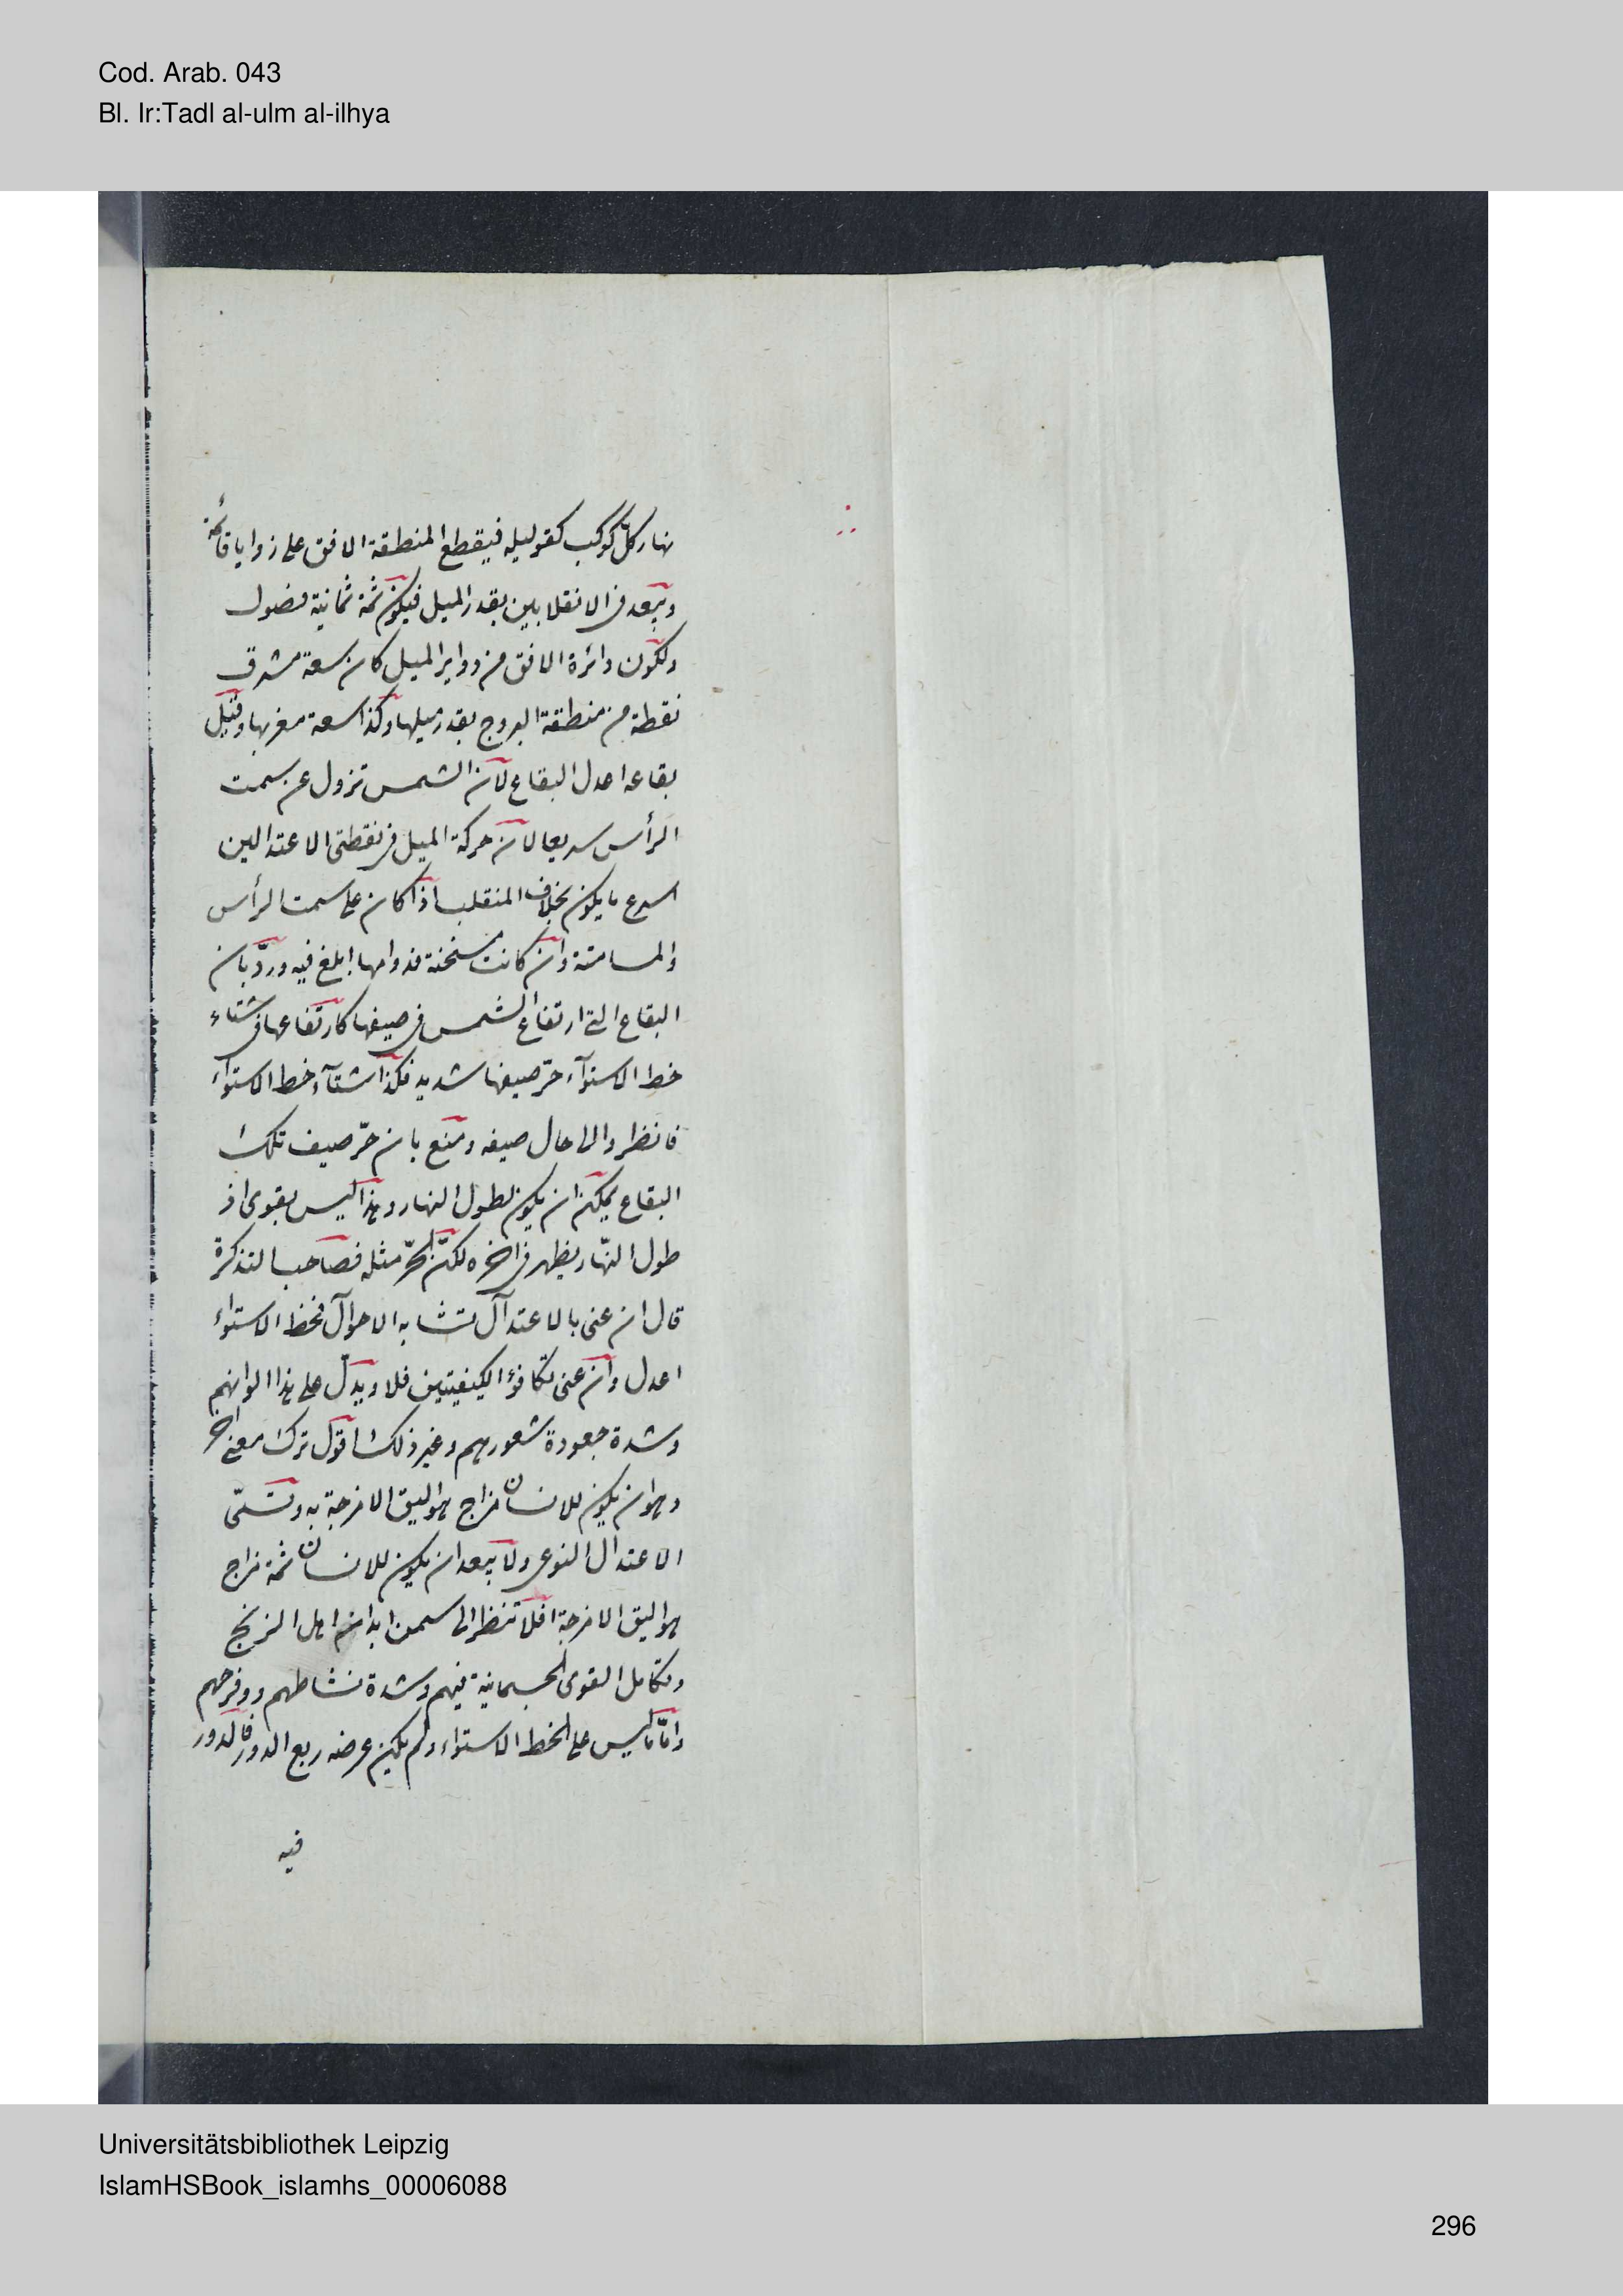 Cod. Arab. 043
Bl. Ir:Tadl al-ulm al-ilhya
نهار كل كوكب كقوليله فيقطع المنطقة الافق على زوايا قائمة
ويبعد فى الانقلابين بقدر الميل فيكون ثمة ثمانية فصول
ولكون دائرة الافق من دواير الميل كان سعة مشرق
نقطة من منطقة البروج بقدر ميلها وكذا سعة مغربها وقيل
بقاعه اعدل البقاع لان الشمس تزول عن سمت
الرأس سريعا لان حركة الميل فى نقطتى الاعتدالين
اسرع ما يكون بخلاف المنقلب اذا كان على سمت الرأس
والمسامتة وان كانت مسخنة فدوامها ابلغ فيه وردّ بان
البقاع التى ارتفاع الشمس فى صيفها كارتفاعها فى شتاء
خط الاستوآء حرّ صيفها شديد فكذا شتآء خط الاستوآء
فانظروا الى حال صيفه ومنع بان حرّ صيف تلك
البقاع يمكن ان يكون لطول النهار وهذا ليس بقوى اذ
طول النهار يظهر فى اخره لكنّ الحرّ مثله فصاحب التذكرة
قال ان عنى بالاعتدال تشابه الاحوال فخط الاستوآء
اعدل وان عنى تكافؤ الكيفيتين فلا ويدلّ على هذا الوانهم
وشدة جعودة شعورهم وغير ذلك اقول ترك معنى اخر
وهو ان يكون للانسان مزاج هو اليق الامزجة به وتسمّى
الاعتدال النوعى ولا يبعد ان يكون للانسان ثمة مزاج
هو اليق الامزجة افلا تنظر الى سمن ابدان اهل الزنج
وتكامل القوى الجسمانية فيهم وشدة نشاطهم ووفرحهم
وامّا ما ليس على الخط الاستواء ولم يكن عرضه ربع الدور فالدور
فيه
Universitätsbibliothek Leipzig
IslamHSBook_islamhs_00006088
296